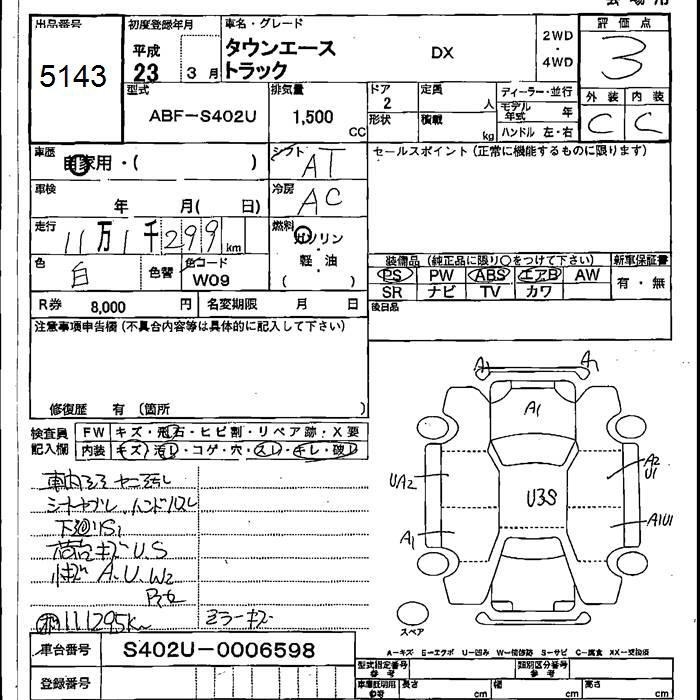 会場用
出品番号 初度登録年月 車名・グレード 評価点
5143 平成 23 3月 タウンエーストラック DX 2WD・4WD 3
型式 ABF-S402U 排気量 1,500 CC ドア 2 定員 人 ディーラー・並行 外装 内装
形状 積載 kg モデル年式 年 C C
ハンドル 左・右
車歴 自家用・( ) シフト AT セールスポイント(正常に機能するものに限ります)
車検 年 月( 日) 冷房 AC
走行 11万1千299km 燃料 ガソリン・軽・油 ( )
装備品(純正品に限り○をつけて下さい) 新車保証書
色 白 色替 色コード W09 PS PW ABS エアB AW 有・無
SR ナビ TV カワ
R券 8,000 円 名変期限 月 日 後日品
注意事項申告欄(不具合内容等は具体的に記入して下さい)
修復歴 有 (箇所 )
検査員記入欄 FW キズ・飛石・ヒビ割・リペア跡:X要
内装 キズ・汚レ・コゲ・穴・スレ・キレ・破レ
車内
下廻りS1
荷台キズU.S
小キズ A.U.W2
111295km ミラーキズ
A1 A1
A1
UA2 A2 U1
U3S
A1 A1U1
スペア
A-キズ E-エクボ U-凹み W-補修跡 S-サビ C-腐食 XX-交換済
車台番号 S402U-0006598 型式指定番号 参考 類別区分番号 参考
登録番号 車庫証明用 参考 長さ cm 幅 cm 高さ cm